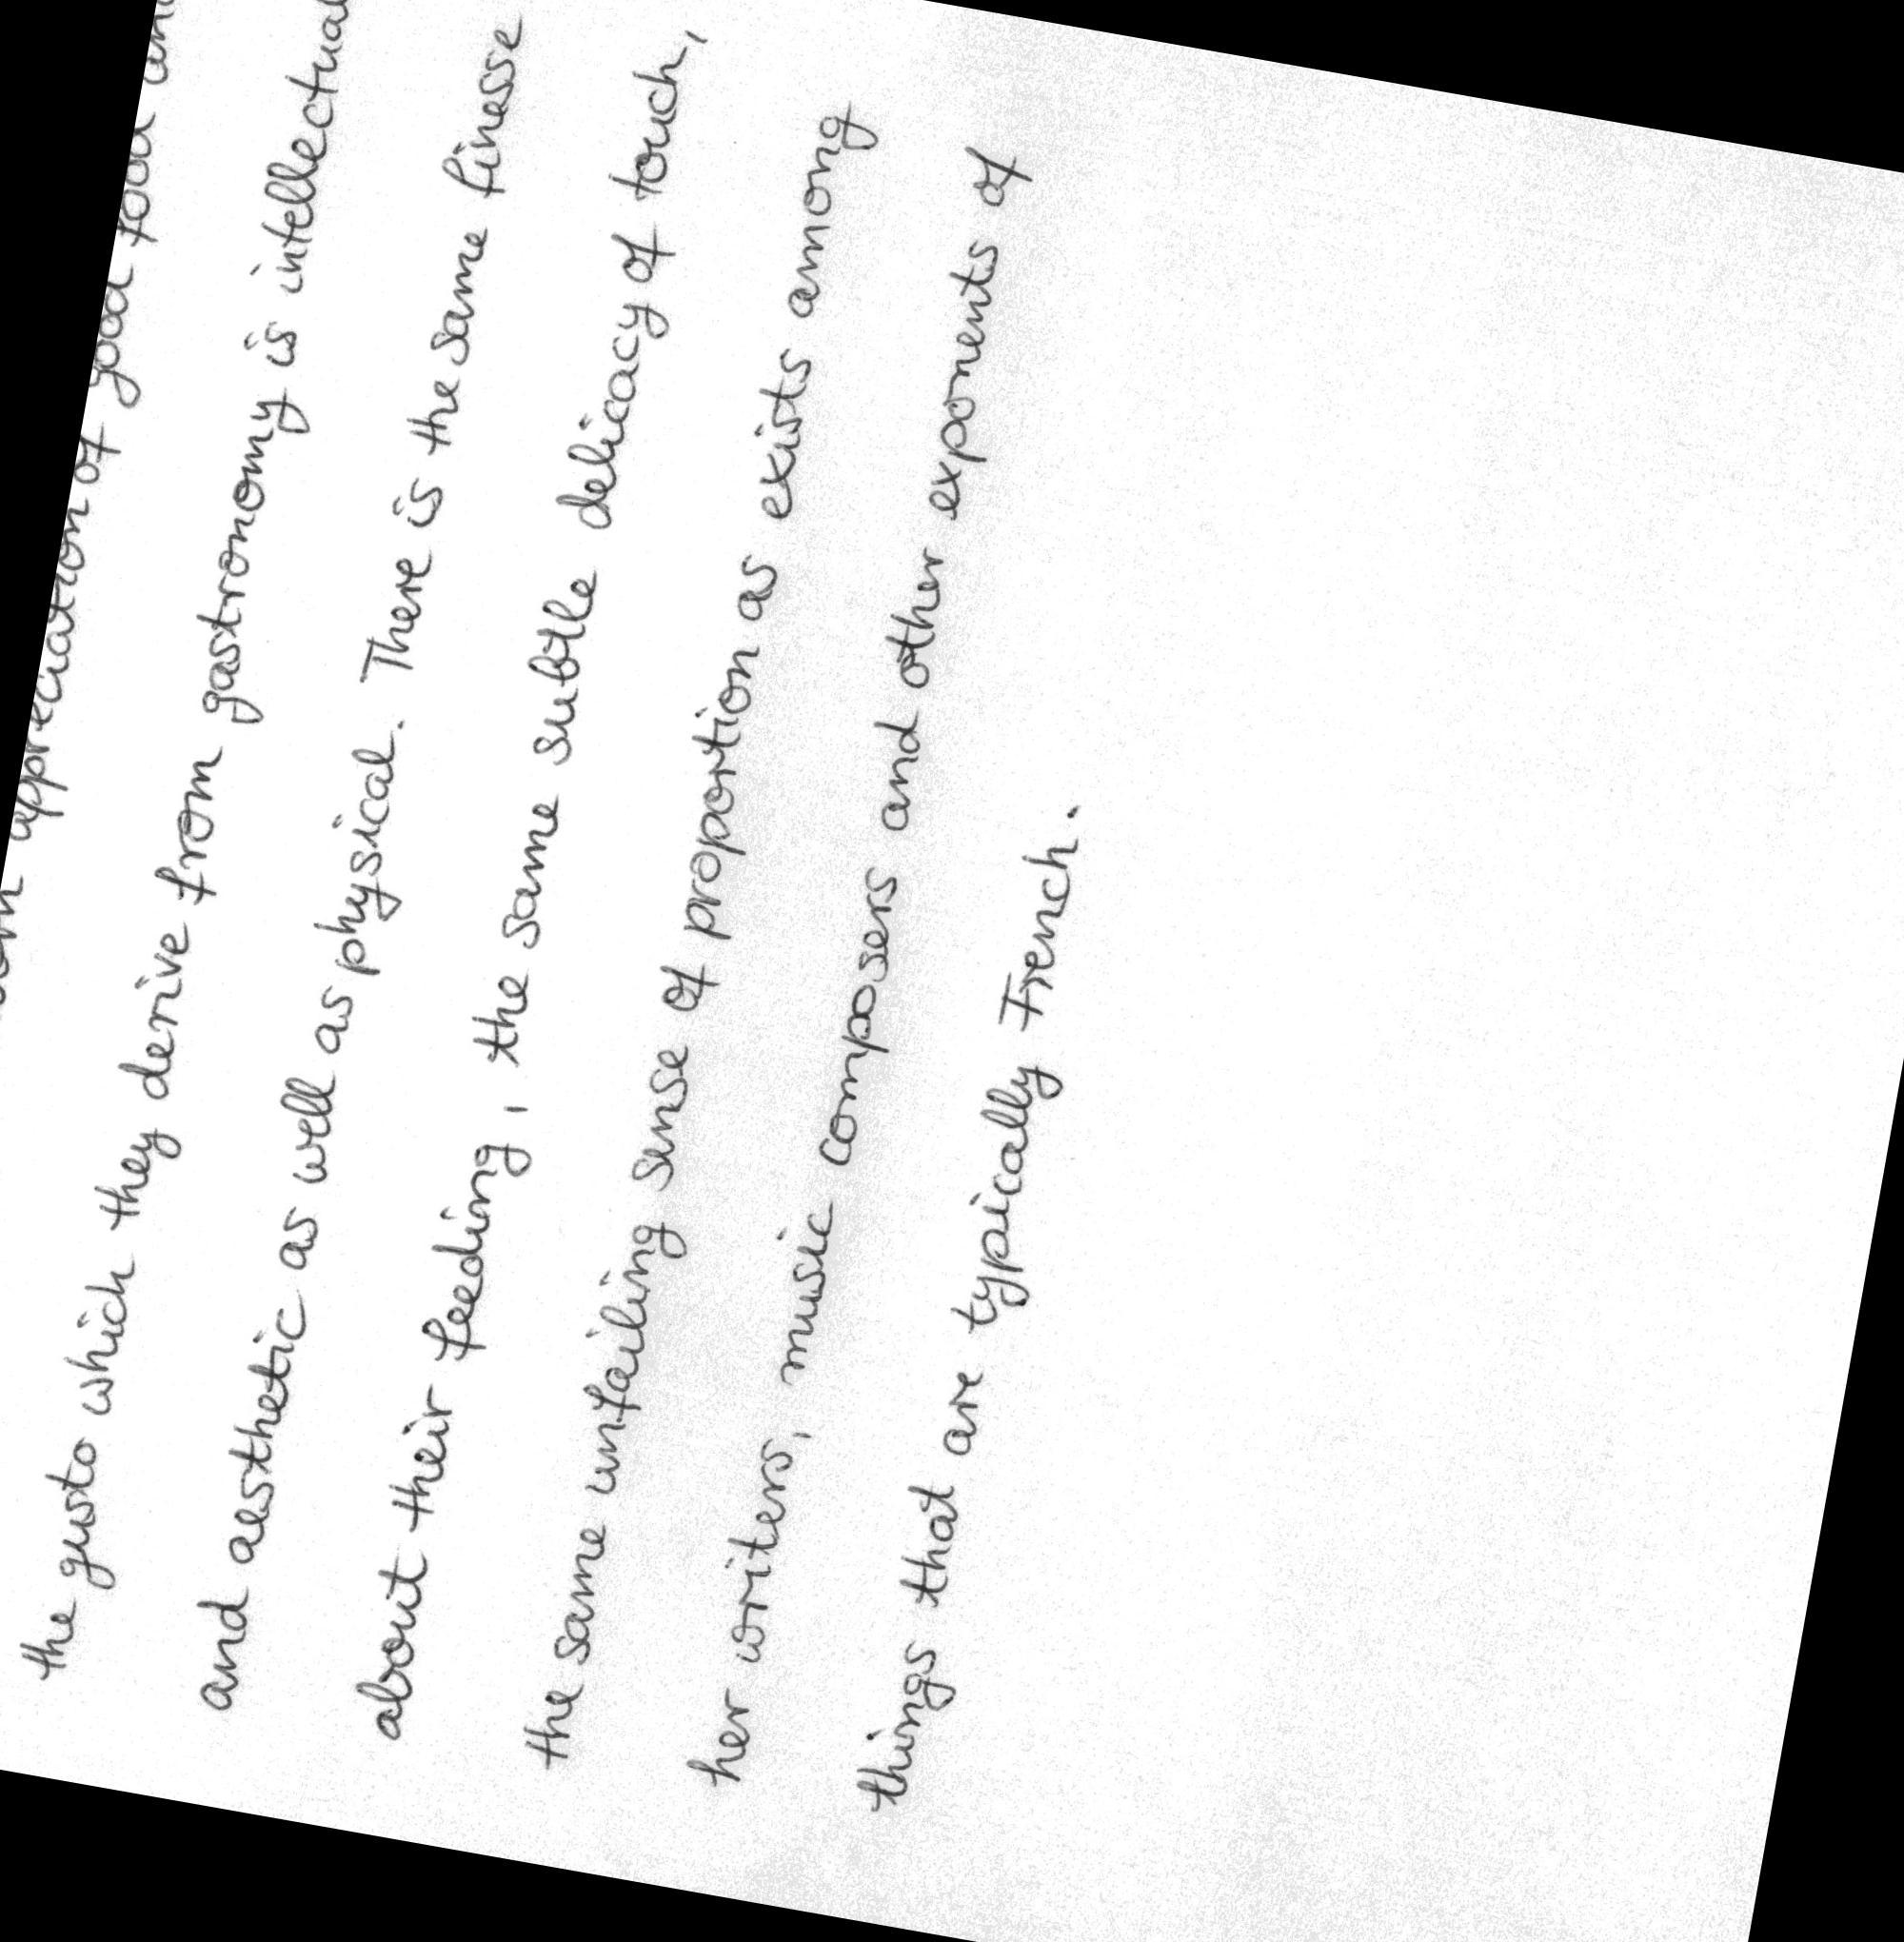 appreciation of good food and
the gusto which they derive from gastronomy is intellectual
and aesthetic as well as physical. There is the same finesse
about their feeding, the same subtle delicacy of touch,
the same unfailing sense of proportion as exists among
her writers, music composers and other exponents of
things that are typically French.